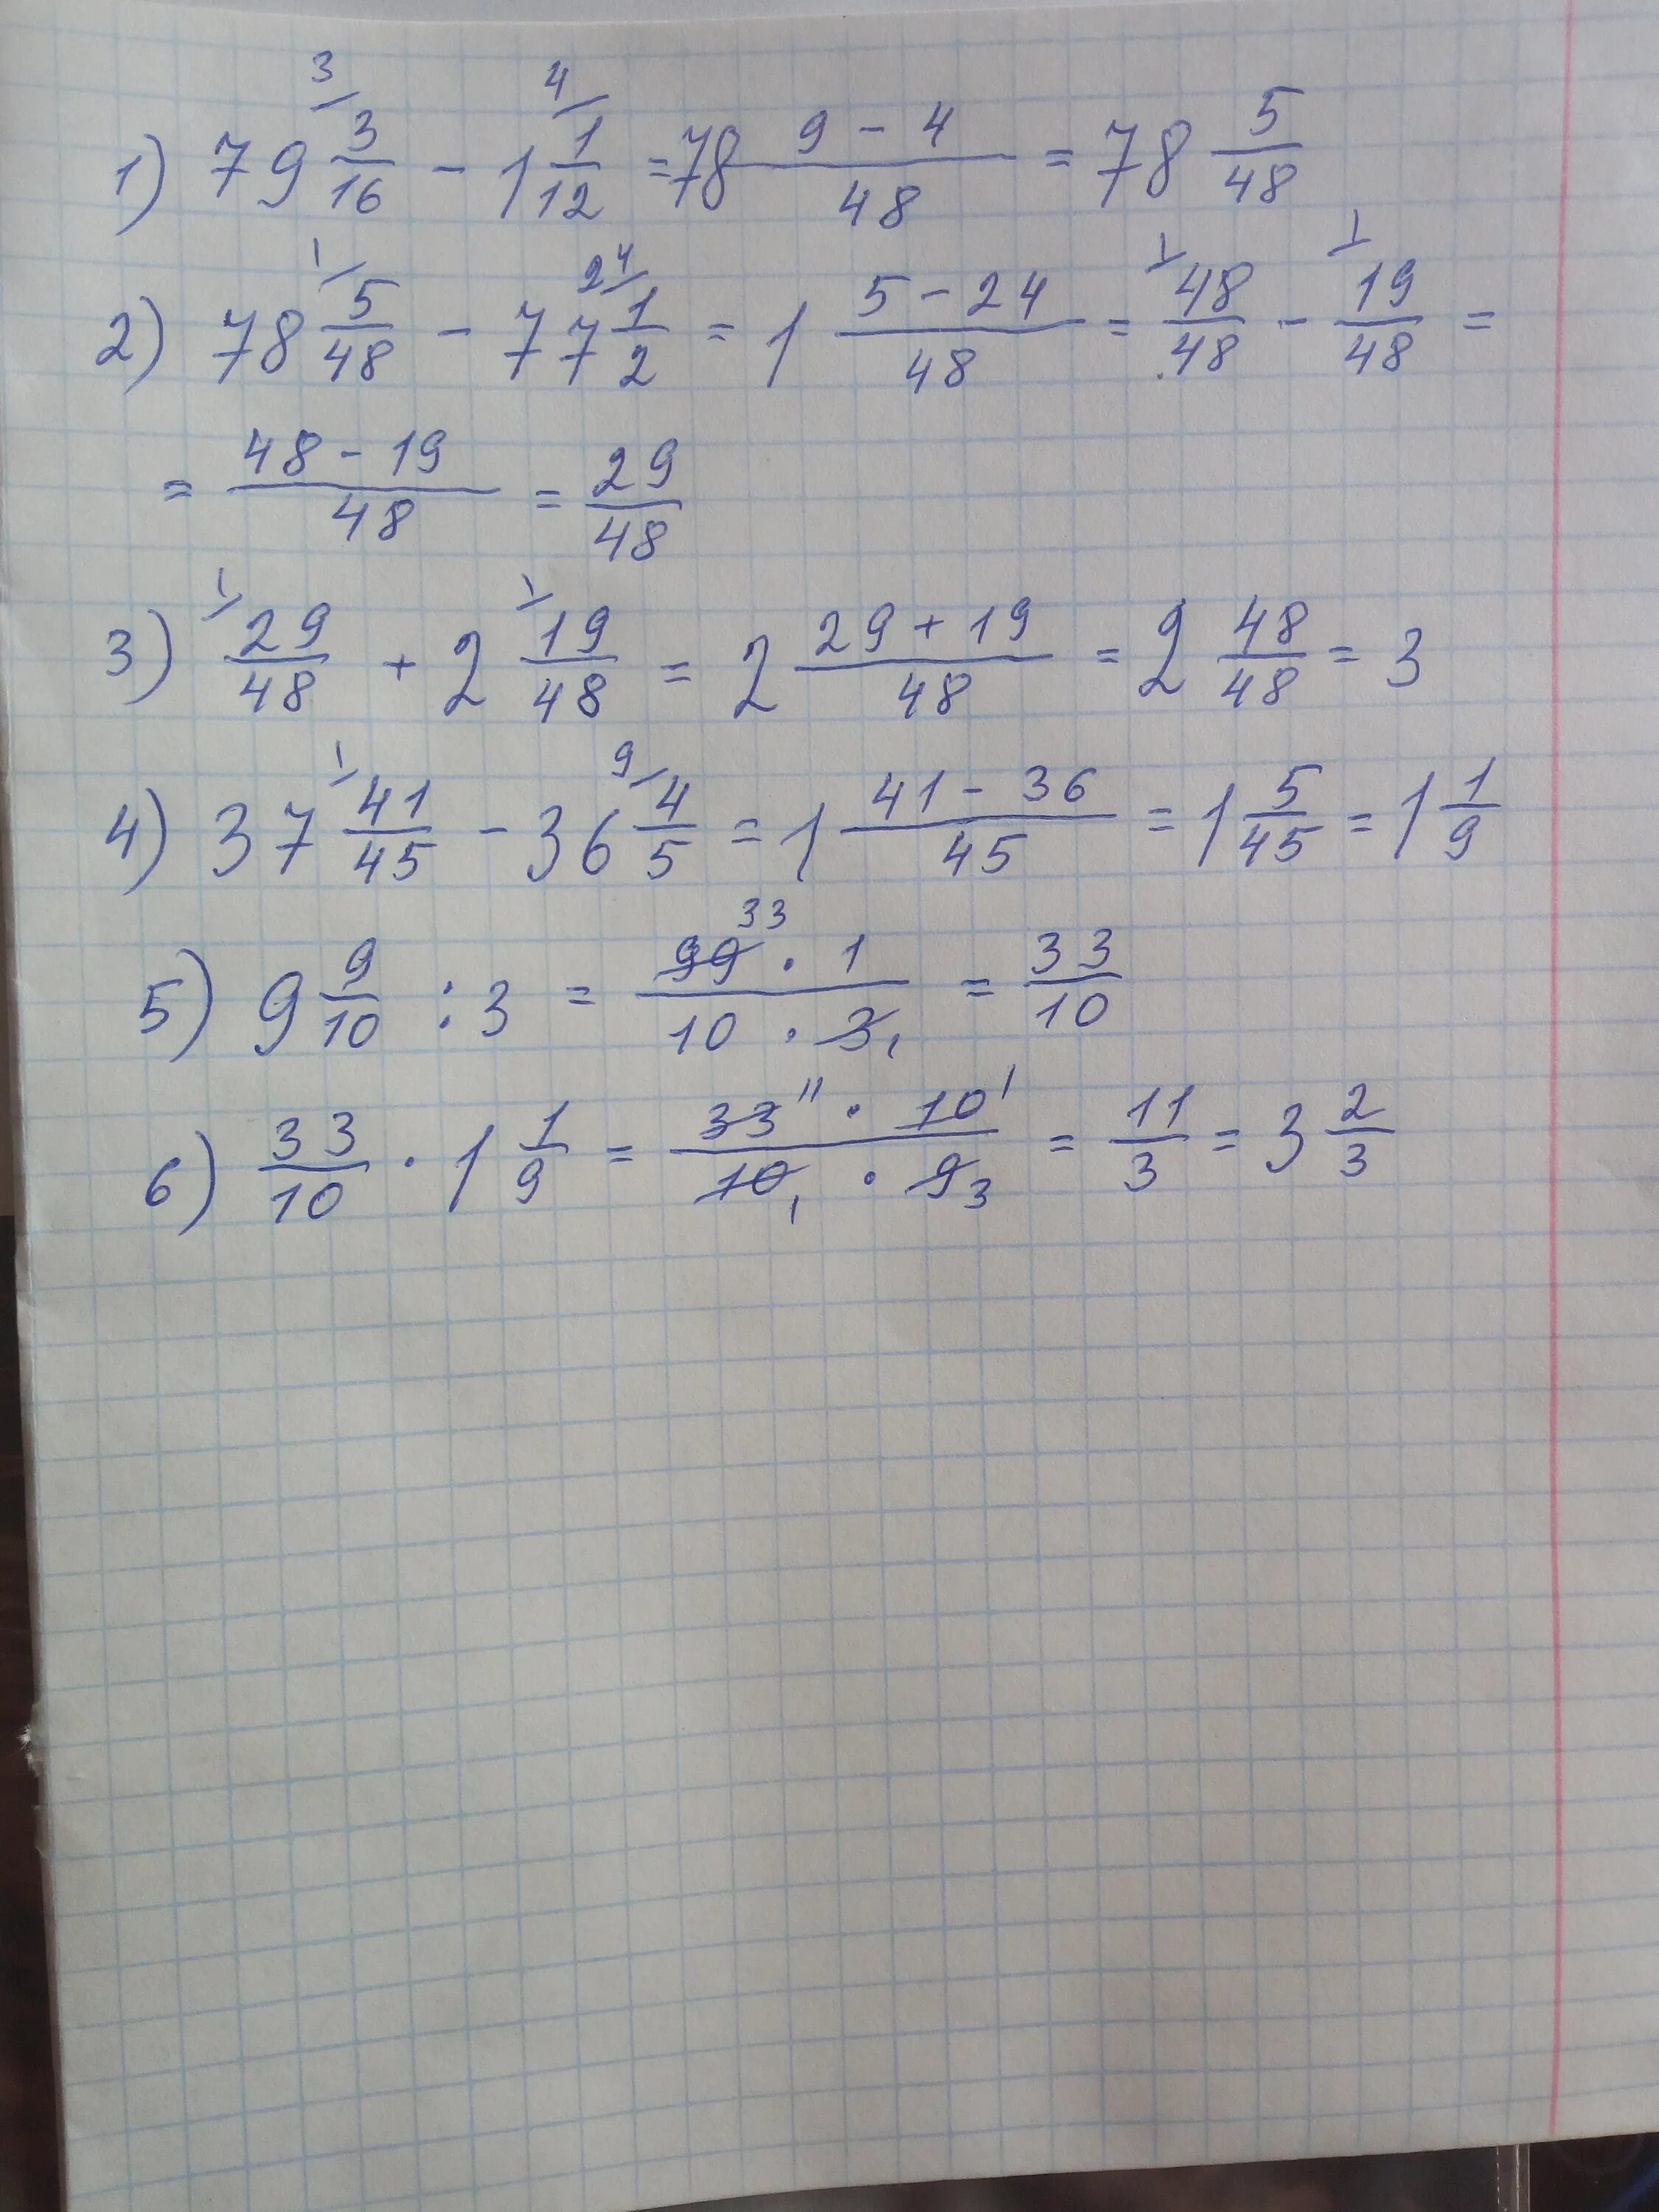 1) 79 3/ 3/16 - 1 4/ 1/12 = 78 (9 - 4)/48 = 78 5/48
2) 78 1/ 5/48 - 77 24/ 1/2 = 1 (5 - 24)/48 = 1/ 48/48 - 1/ 19/48 =
= (48 - 19)/48 = 29/48
3) 1/ 29/48 + 2 1/ 19/48 = 2 (29 + 19)/48 = 2 48/48 = 3
4) 37 1/ 41/45 - 36 9/ 4/5 = 1 (41 - 36)/45 = 1 5/45 = 1 1/9
5) 9 9/10 : 3 = (99 33 · 1)/(10 · 3 1) = 33/10
6) 33/10 · 1 1/9 = (33 11 · 10 1)/(10 1 · 9 3) = 11/3 = 3 2/3